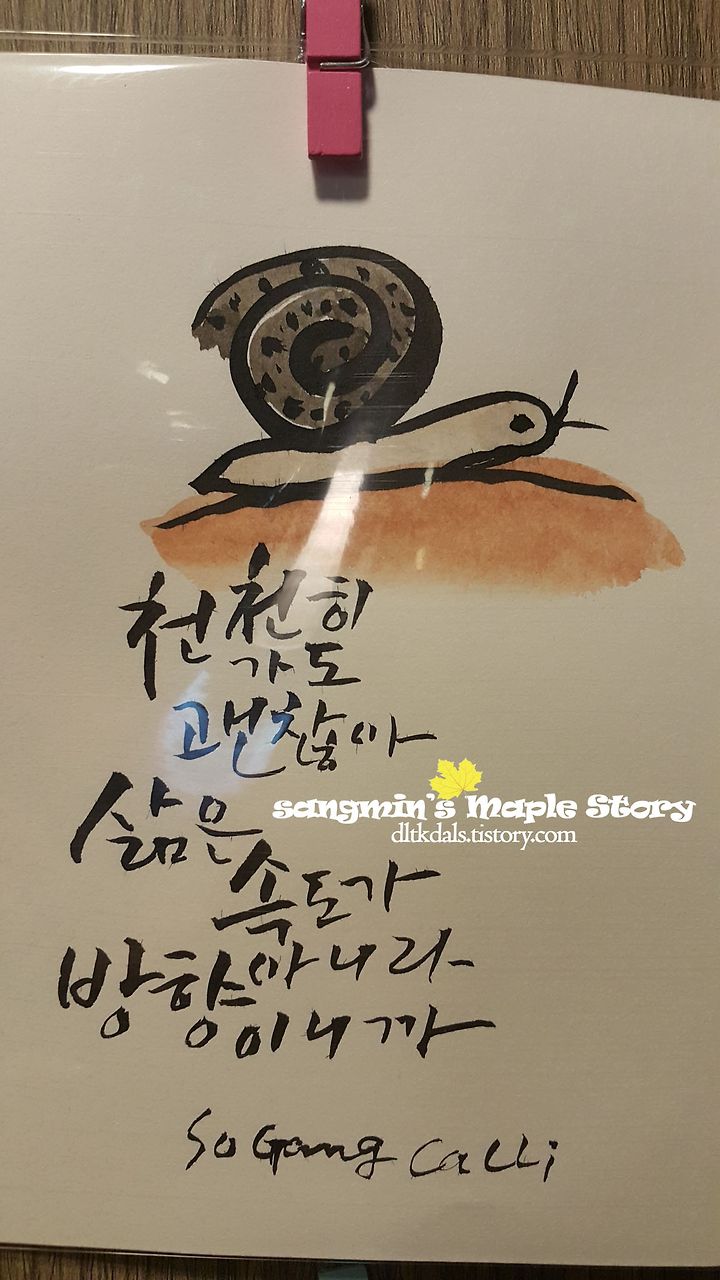 천천히
가도
괜찮아
sangmin's Maple Story
dltkdals.tistory.com
삶은
속도가
아니라
방향이니까
SoGang Calli